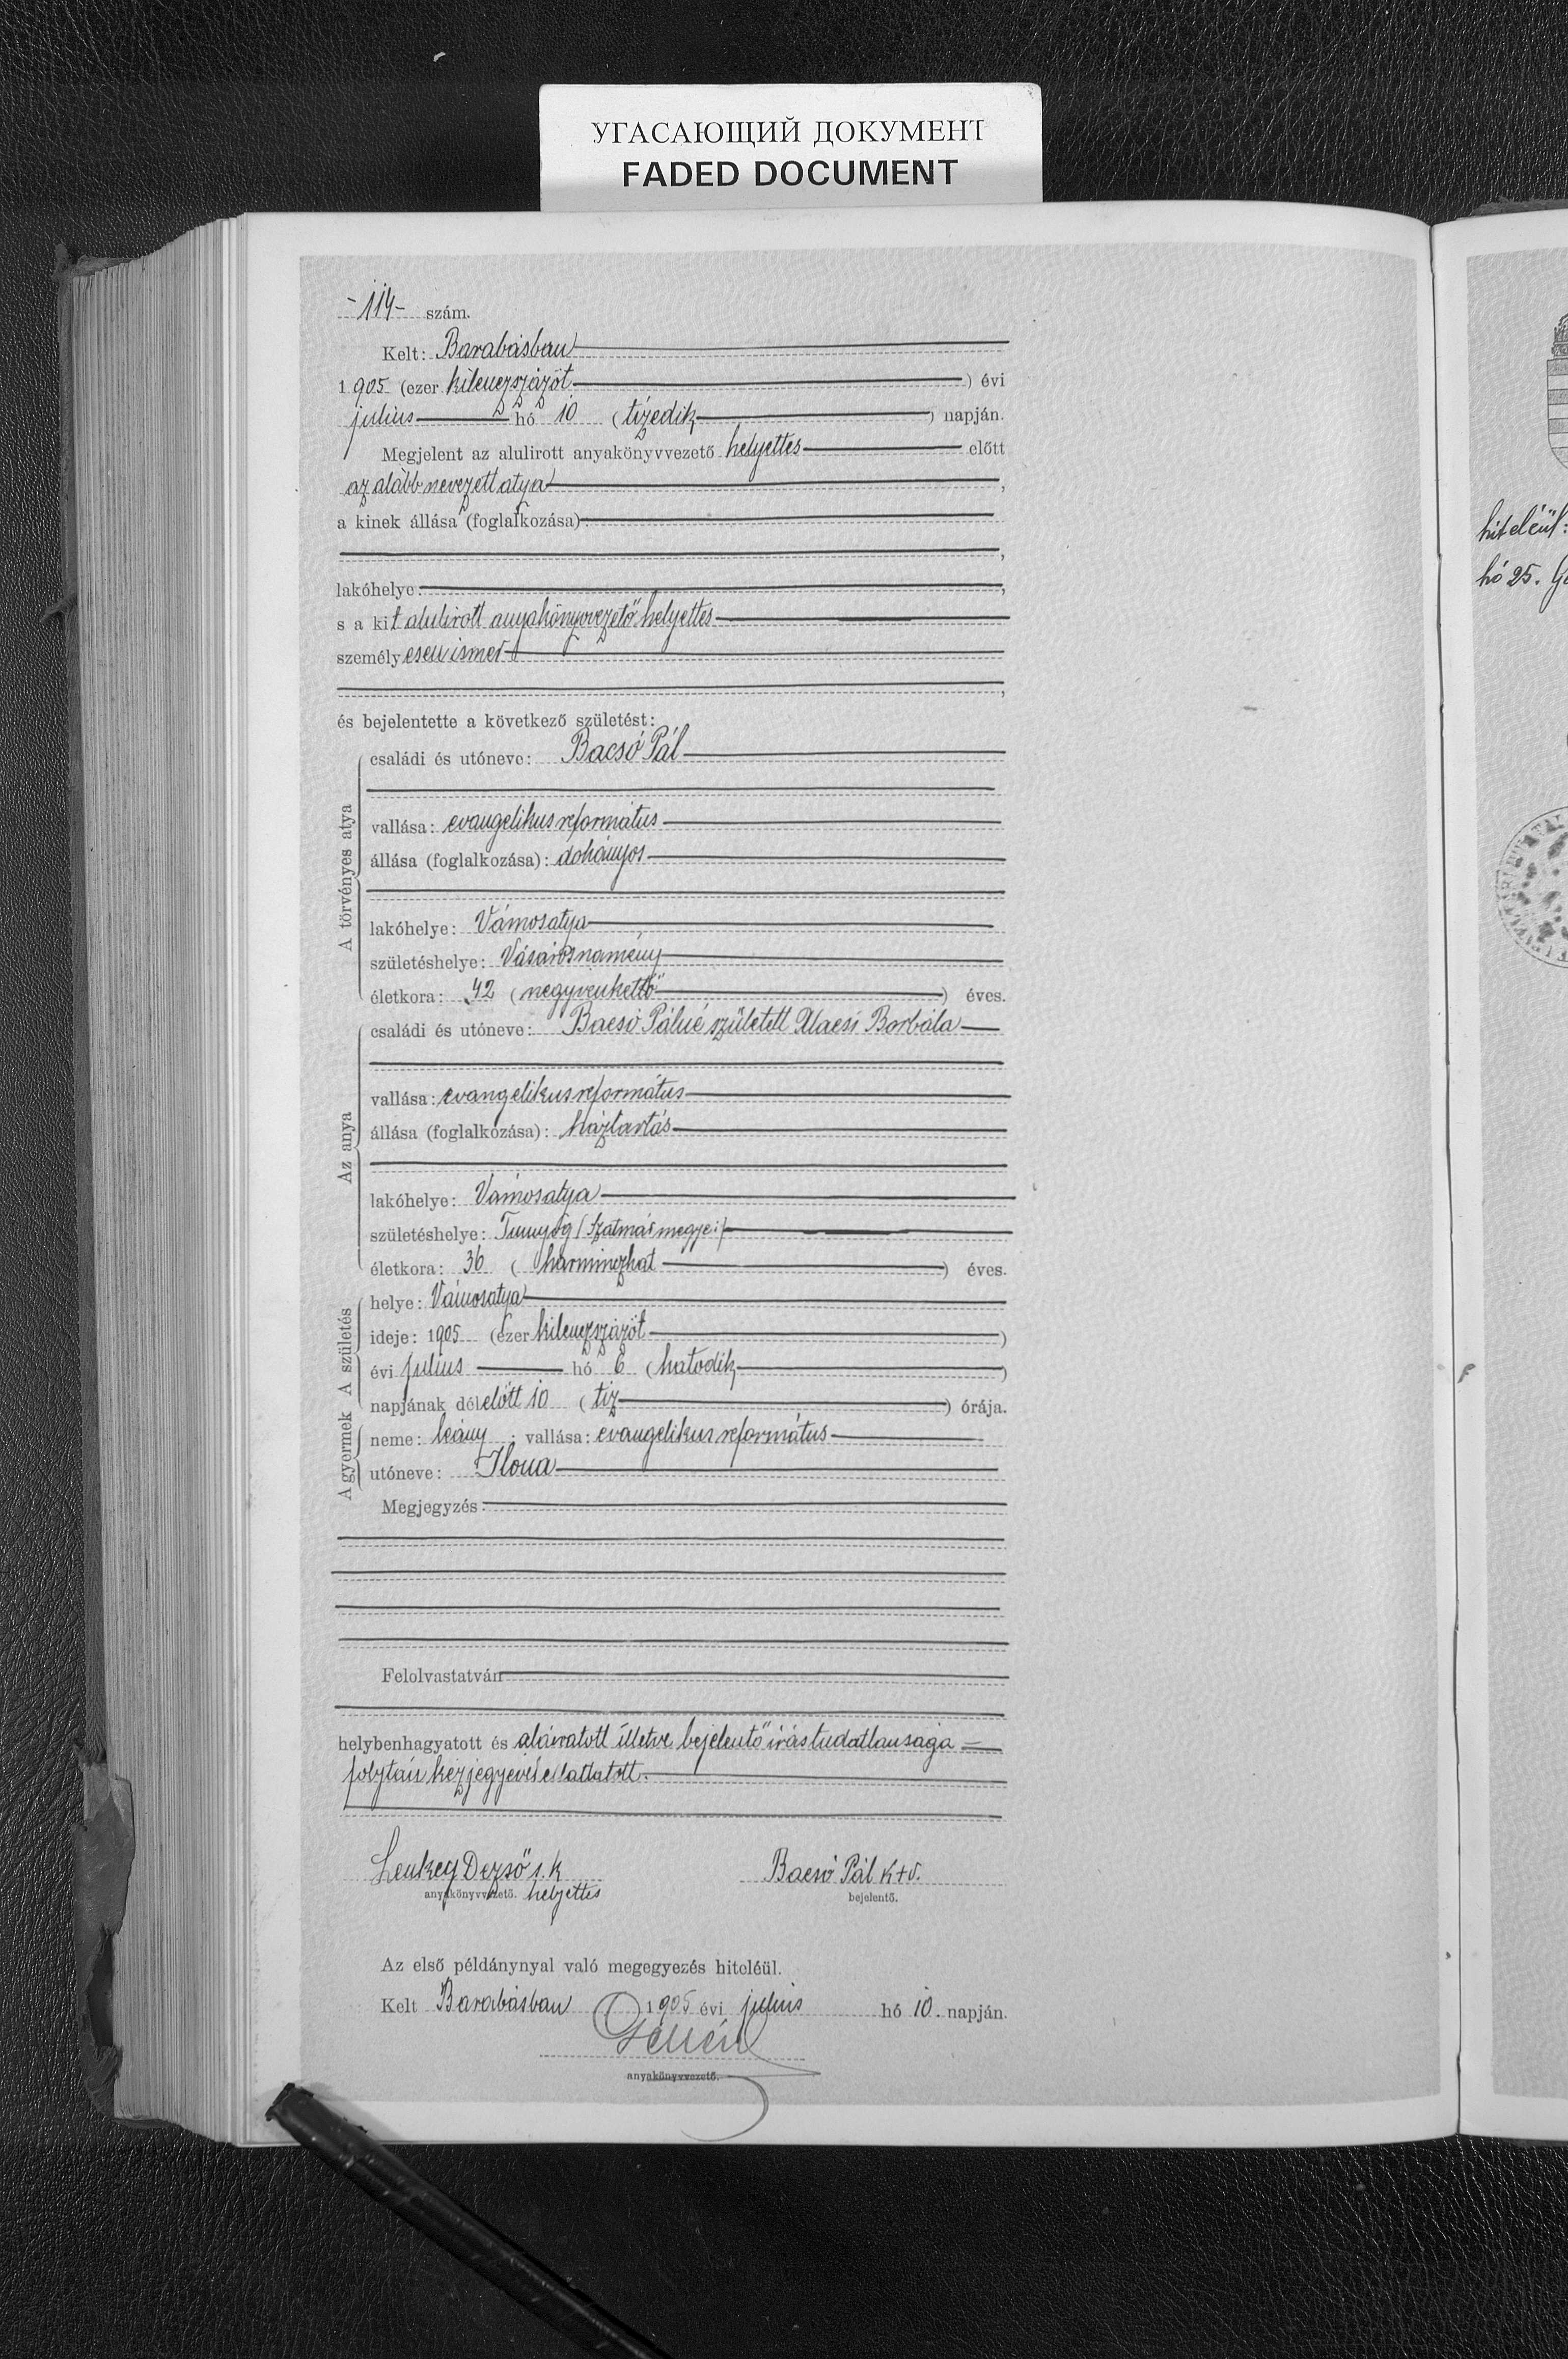 УГАСАЮЩИЙ ДОКУМЕНТ
FADED DOCUMENT
-114- szám.
Kelt: Barabásban
1905 (ezer kilenczszázöt) évi
julius hó 10 (tizedik) napján.
Megjelent az alulirott anyakönyvvezető helyettes előtt
az alább nevezett atya,
a kinek állása (foglalkozása):
lakóhelye:
s a kit alulirott anyakönyvvezető helyettes
személyesen ismer
és bejelentette a következő születést:
A törvényes atya
családi és utóneve: Bacsó Pál
vallása: evangelikus református
állása (foglalkozása): dohányos
lakóhelye: Vámosatya
születéshelye: Vásárosnamény
életkora: 42 (negyvenkettő) éves.
Az anya
családi és utóneve: Bacsó Pálné született Borbála
vallása: evangelikus református
állása (foglalkozása): háztartás
lakóhelye: Vámosatya
születéshelye: Tunyog (Szatmár megye)
életkora: 36 (harminczhat) éves.
A születés
helye: Vámosatya
ideje: 1905 (ezer kilenczszázöt)
évi julius hó 6 (hatodik)
napjának délelőtt 10 (tiz) órája.
A gyermek
neme: leány; vallása: evangelikus református
utóneve: Ilona
Megjegyzés:
Felolvastatván
helybenhagyatott és aláiratott illetve bejelentő irástudatlansága
folytán kézjegyével ellattatott.
Lenkey Dezső s. k. Bacsó Pál k+v.
anyakönyvvezető. helyettes bejelentő.
Az első példánynyal való megegyezés hiteléül.
Kelt Barabásban 1905 évi julius hó 10. napján.
anyakönyvvezető.
hiteléül:
hó 25.